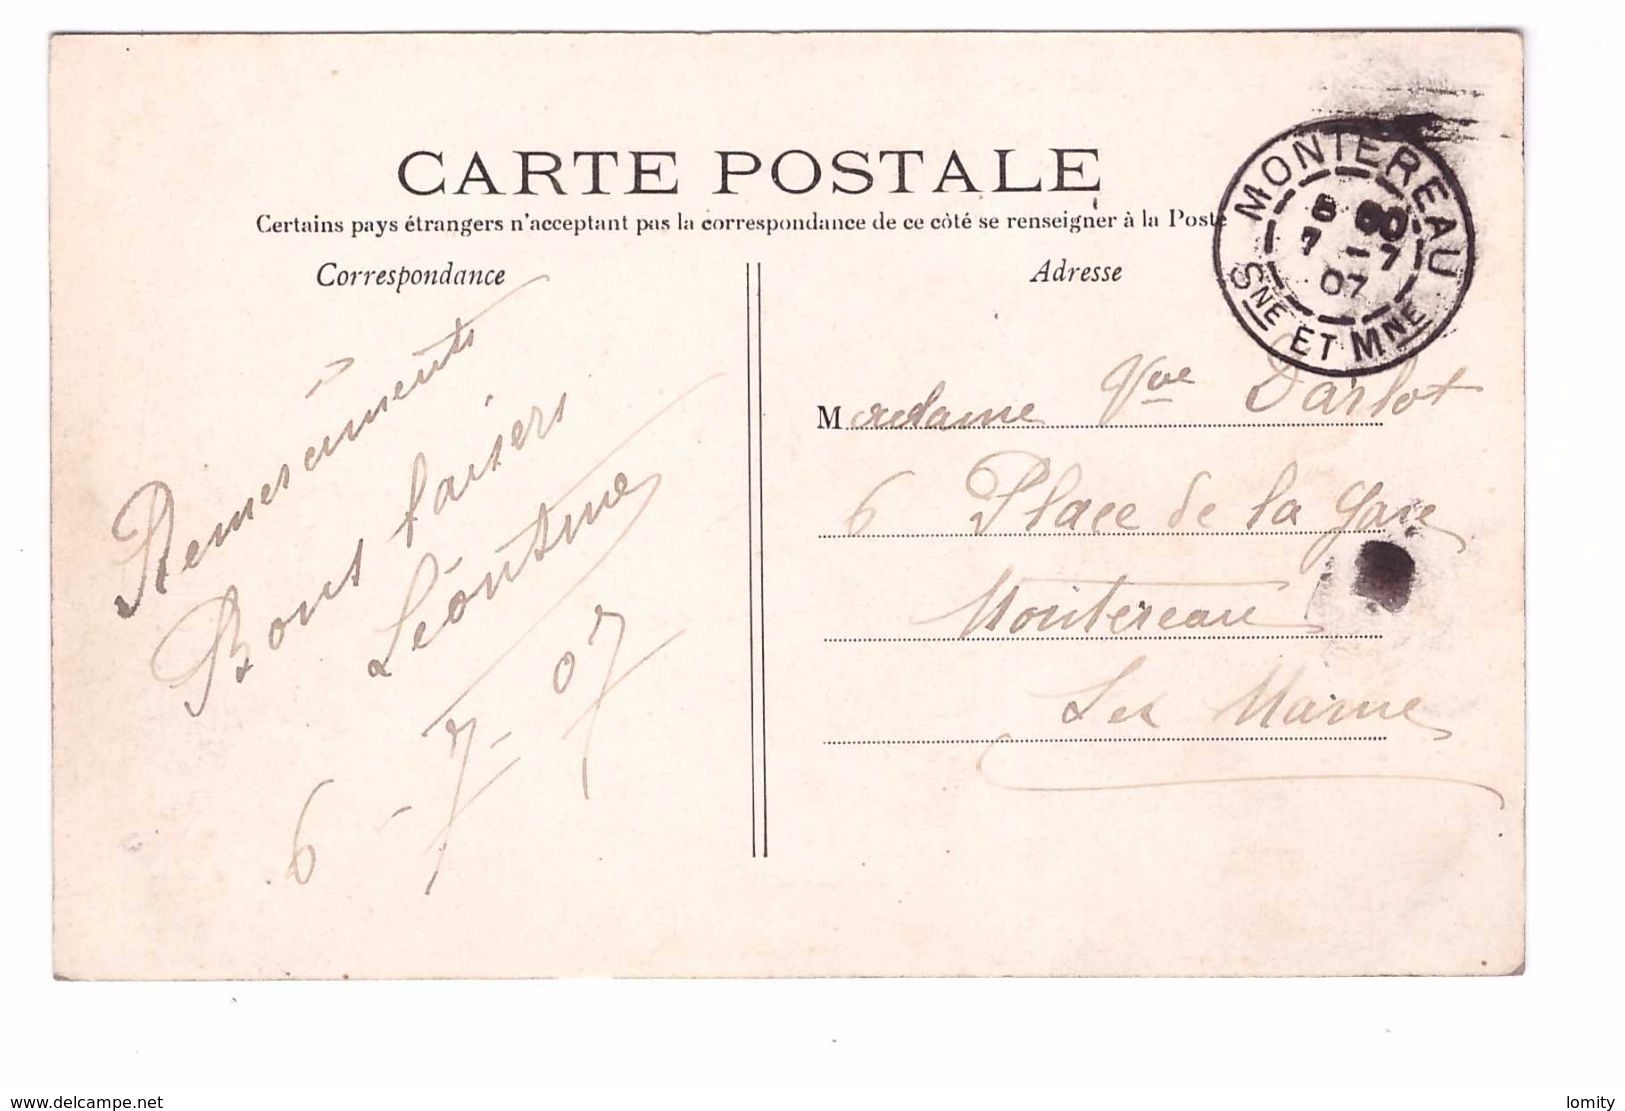 CARTE POSTALE
Certains pays étrangers n'acceptant pas la correspondance de ce côté se renseigner à la Poste
Correspondance
Remerciements
Bons baisers
Léontine
6-7-07
Adresse
MONTEREAU
7-7
07
SNE ET MNE
Madame Vve Darlot
6 Place de la Gare
Montereau
Marne
www.delcampe.net
lomity